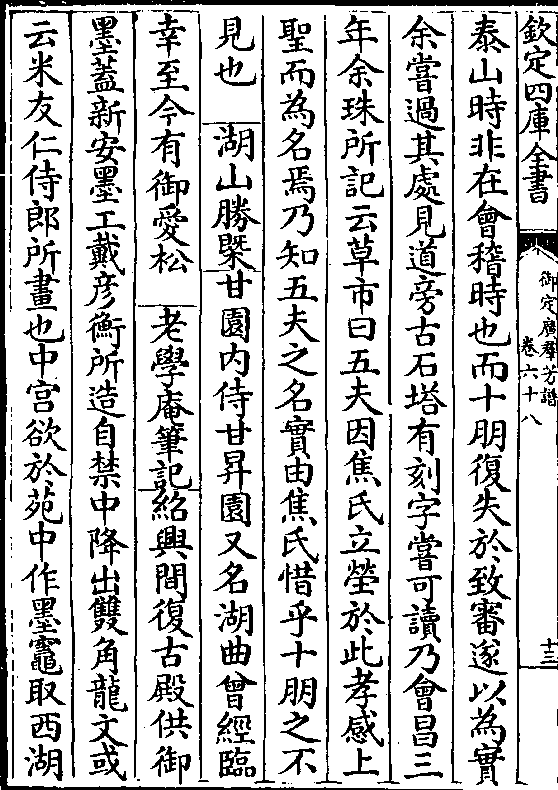 欽定四庫全書
御定廣羣芳譜
卷六十八
十三
泰山時非在會稽時也而十朋復失於致審遂以為實
余嘗過其處見道旁古石塔有刻字嘗可讀乃會昌三
年余珠所記云草市曰五夫因焦氏立塋於此孝感上
聖而為名焉乃知五夫之名實由焦氏惜乎十朋之不
見也 湖山勝槩甘園内侍甘昇園又名湖曲曾經臨
幸至今有御愛松 老學庵筆記紹興間復古殿供御
墨蓋新安墨工戴彦衡所造自禁中降出雙角龍文或
云米友仁侍郎所畫也中宫欲於苑中作墨竈取西湖